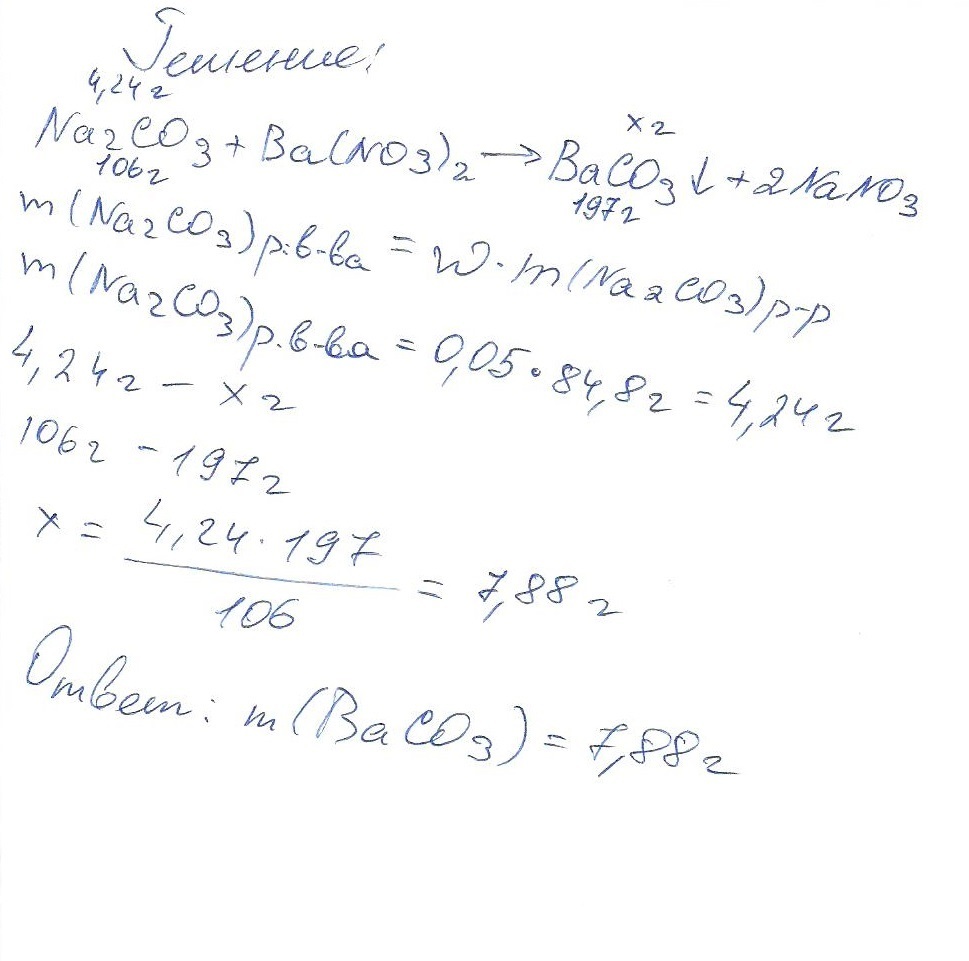 Решение:
4,24г
хг
Na2CO3 + Ba(NO3)2 → BaCO3↓ + 2NaNO3
106г
197г
m(Na2CO3)р.в-ва = W · m(Na2CO3)р-р
m(Na2CO3)р.в-ва = 0,05 · 84,8г = 4,24г
4,24г – хг
106г – 197г
x = 4,24 · 197 / 106 = 7,88г
Ответ: m(BaCO3) = 7,88г